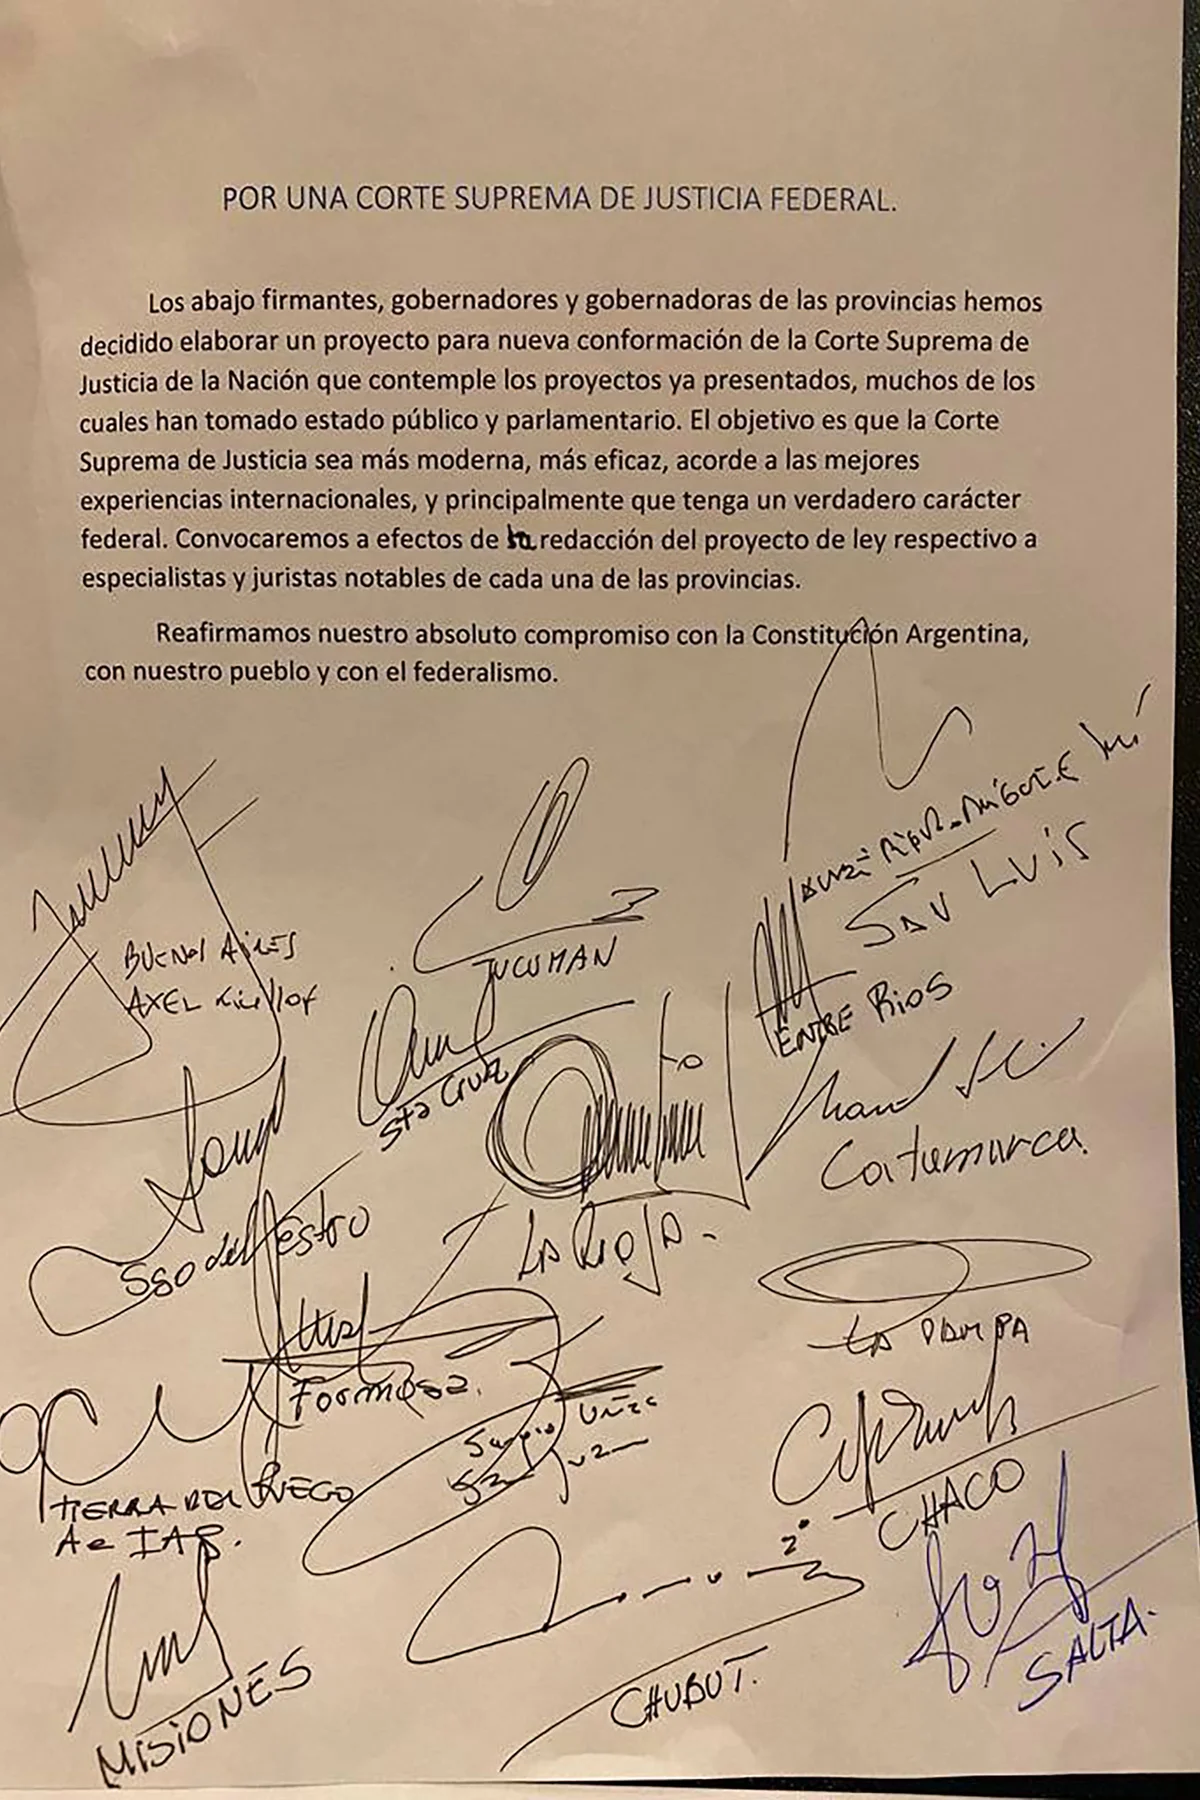 POR UNA CORTE SUPREMA DE JUSTICIA FEDERAL.
Los abajo firmantes, gobernadores y gobernadoras de las provincias hemos
decidido elaborar un proyecto para nueva conformación de la Corte Suprema de
Justicia de la Nación que contemple los proyectos ya presentados, muchos de los
cuales han tomado estado público y parlamentario. El objetivo es que la Corte
Suprema de Justicia sea más moderna, más eficaz, acorde a las mejores
experiencias internacionales, y principalmente que tenga un verdadero carácter
federal. Convocaremos a efectos de la redacción del proyecto de ley respectivo a
especialistas y juristas notables de cada una de las provincias.
Reafirmamos nuestro absoluto compromiso con la Constitución Argentina,
con nuestro pueblo y con el federalismo.
BUENOS AIRES
AXEL Kicillof
TUCUMAN
SAN LUIS
ENTRE RIOS
Sta Cruz
Catamarca.
LA RIOJA.
SGO del Estro
LA PAMPA
Formosa.
Sergio Uñac
San Juan
CHACO
TIERRA DEL FUEGO
A e IAS.
SALTA.
MISIONES
CHUBUT.